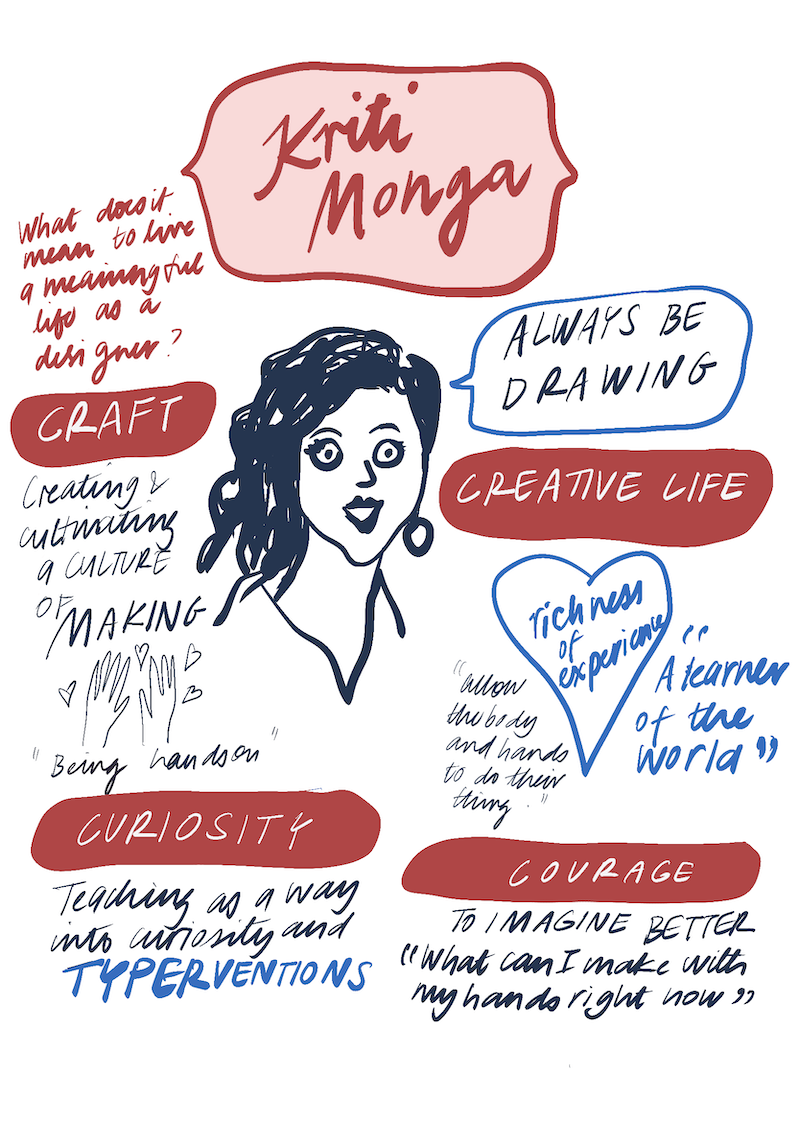 Kriti
Monga
What does it
mean to live
a meaningful
life as a
designer?
ALWAYS BE
DRAWING
CRAFT
Creating &
cultivating
a CULTURE
OF
MAKING
"Being hands on"
CREATIVE LIFE
richness
of
experience
"allow
the body
and hands
to do their
thing."
"A learner
of the
world"
CURIOSITY
Teaching as a way
into curiosity and
TYPERVENTIONS
COURAGE
TO IMAGINE BETTER
"What can I make with
my hands right now"